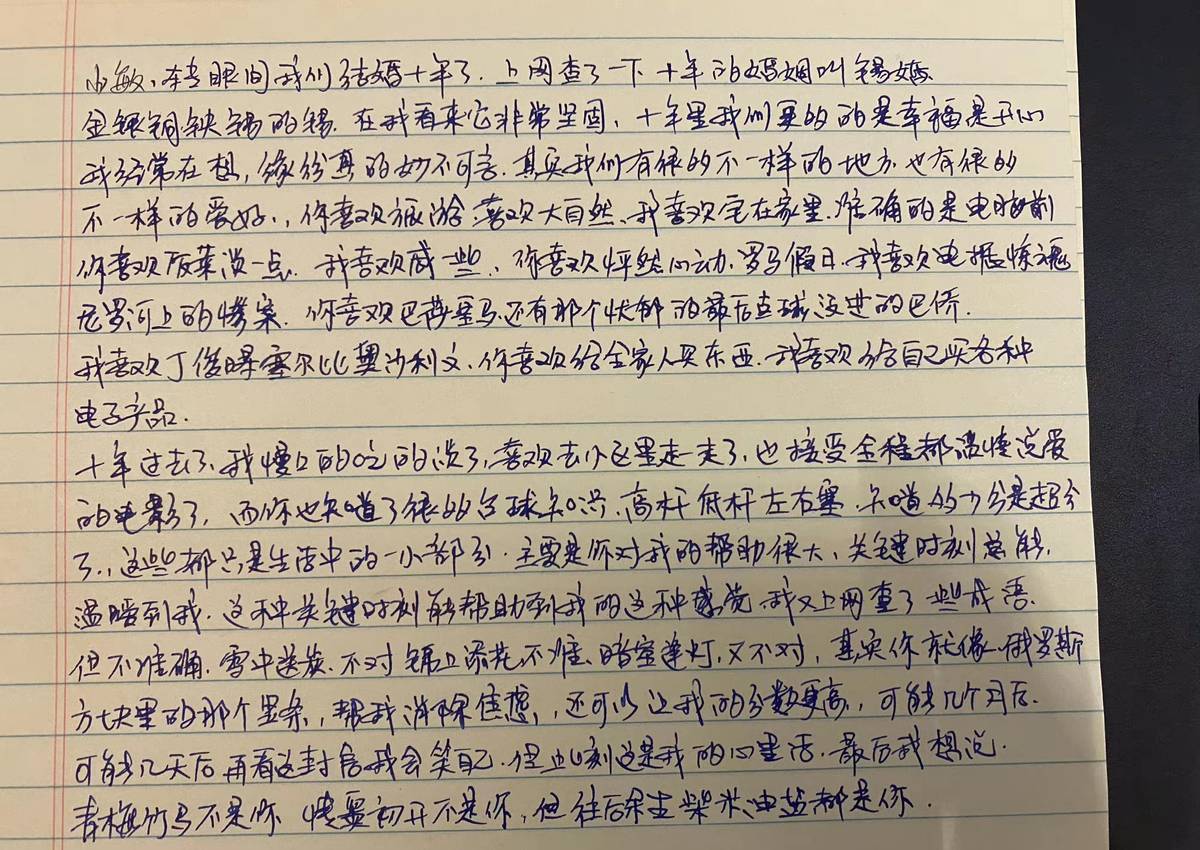 小敏、转眼间我们结婚十年了.上网查了一下十年的婚姻叫锡婚.
金银铜铁锡的锡.在我看来它非常坚固、十年里我们更多的是幸福是开心
我经常在想,缘分真的妙不可言.其实我们有很多不一样的地方也有很多
不一样的爱好.,你喜欢旅游.喜欢大自然、我喜欢宅在家里.准确的是电脑前
你喜欢饭菜淡一点.我喜欢咸一些、你喜欢怦然心动.罗马假日.我喜欢电锯惊魂
尼罗河上的惨案.你喜欢巴蒂罗马还有那个忧郁的最后点球没进的巴乔.
我喜欢丁俊晖塞尔比奥沙利文.你喜欢给全家人买东西.我喜欢给自己买各种
电子产品.
十年过去了.我慢慢的吃的淡了,喜欢去小区里走一走了,也接受全程都温情说爱
的电影了,而你也知道了很多台球知识.高杆低杆左右塞.知道多少分是超分
了.,这些都只是生活中的一小部分.主要是你对我的帮助很大、关键时刻总能
温暖到我.这种关键时刻能帮助到我的这种感觉.我又上网查了一些成语.
但不准确.雪中送炭.不对锦上添花.不准、暗室逢灯.又不对,其实你就像.俄罗斯
方块里的那个竖条,帮我消除焦虑,还可以让我的分数更高.,可能几个月后.
可能几天后再看这封信我会笑自己.但此刻这是我的心里话.最后我想说.
青梅竹马不是你.情窦初开不是你,但往后余生柴米油盐都是你.